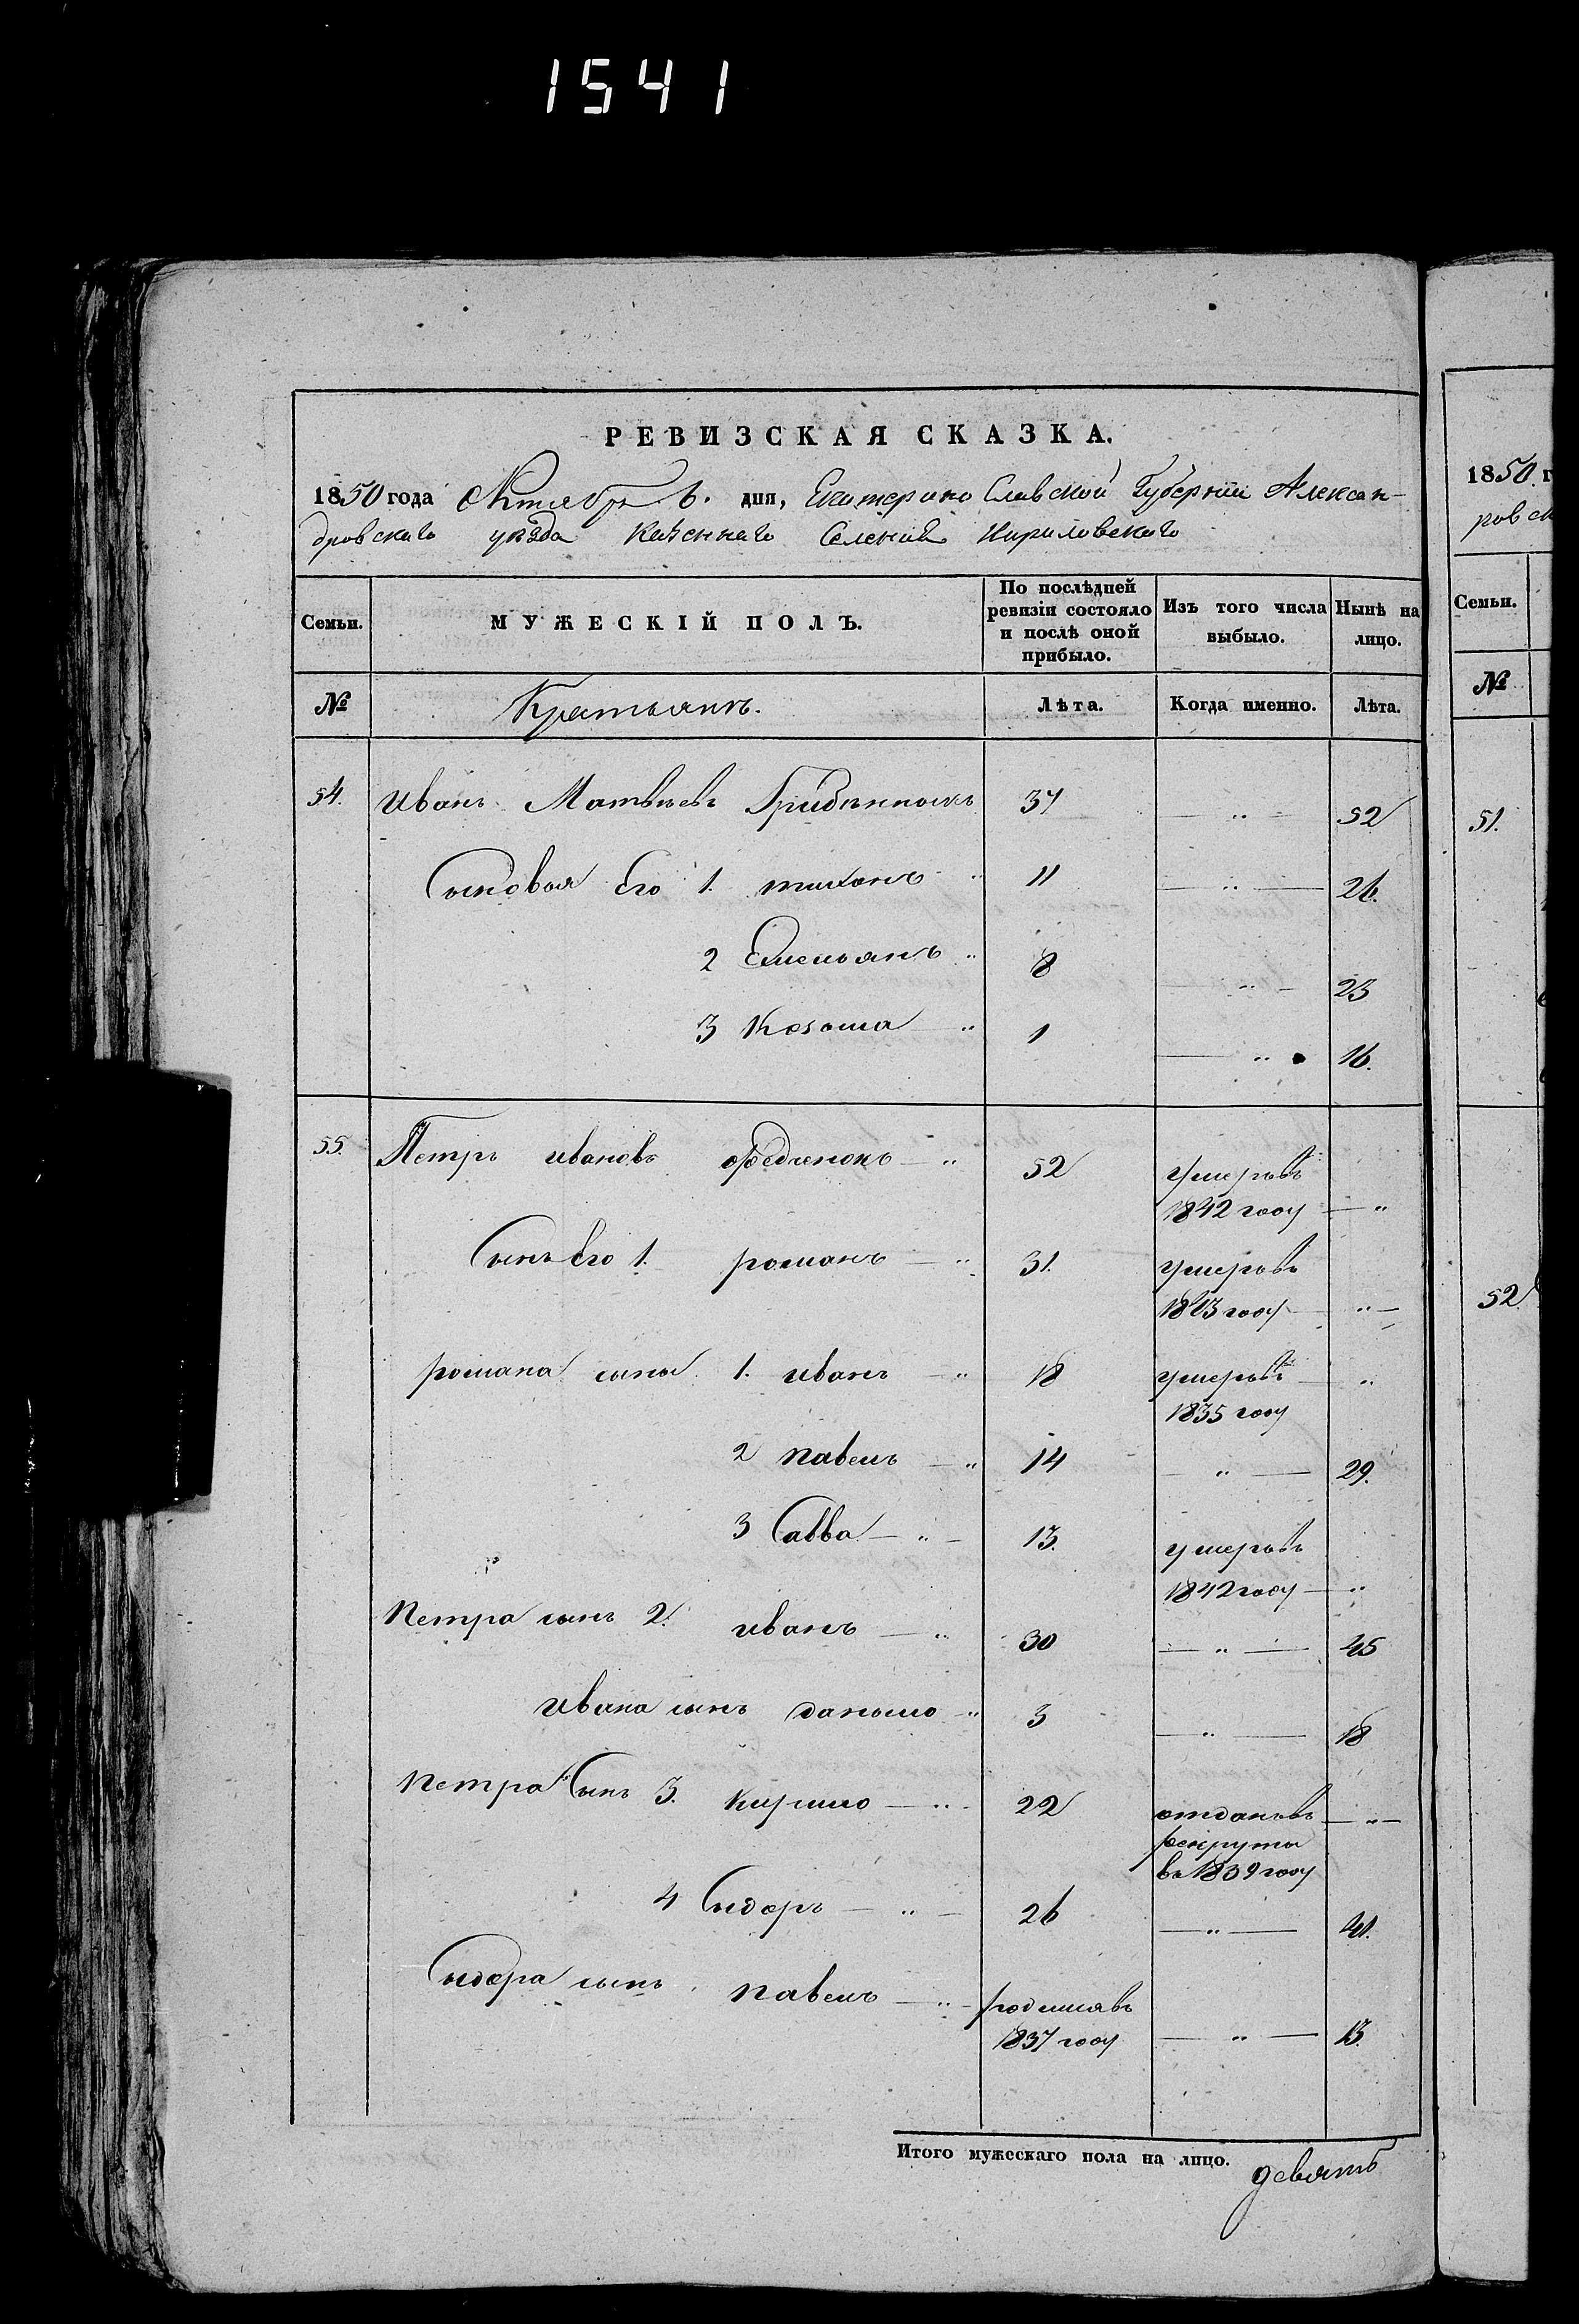 1541
РЕВИЗСКАЯ СКАЗКА.
1850 года Октября 6. дня, Екатерино Славской Губернии Алексан-
дровскаго уезда Казеннаго Селения Кириловскаго
Семьи. МУЖЕСКІЙ ПОЛЪ. По послѣдней ревизіи состояло и послѣ оной прибыло. Изъ того числа выбыло. Нынѣ на лицо.
№ Лѣта. Когда именно. Лѣта.
54. Иванъ Матвѣевъ 37 — „ — 52
Сыновья Его 1. тихонъ „ 11 — „ — 26.
2 Емельянъ „ 8 — „ — 23
3 Козьма — „ 1 — „ 16.
55. Петръ ивановъ Федченокъ — „ 52 умеръ въ
1842 году — „
Сынъ Его 1. романъ — „ 31. умеръ въ
1843 году — „ —
романа сыны 1. иванъ — „ 18 умеръ въ — „
1835 году
2 павелъ — „ 14 — „ — 29.
3 Савва — „ — 13. умеръ въ
1842 году — „
Петра сынъ 2. иванъ — „ 30 — „ — 45
Ивана сынъ данило „ 3 — „ — 18
Петра Сынъ 3. кирило — „ 22 отданъ въ — „ —
рекруты
въ 1839 году
4 Сидоръ — „ — 26 — „ — 41.
Сидора сынъ павелъ — „ — родился въ
1837 году — „ — 13.
Итого мужескаго пола на лицо. девять
1850. г
ровск
Семьи.
№
51.
52